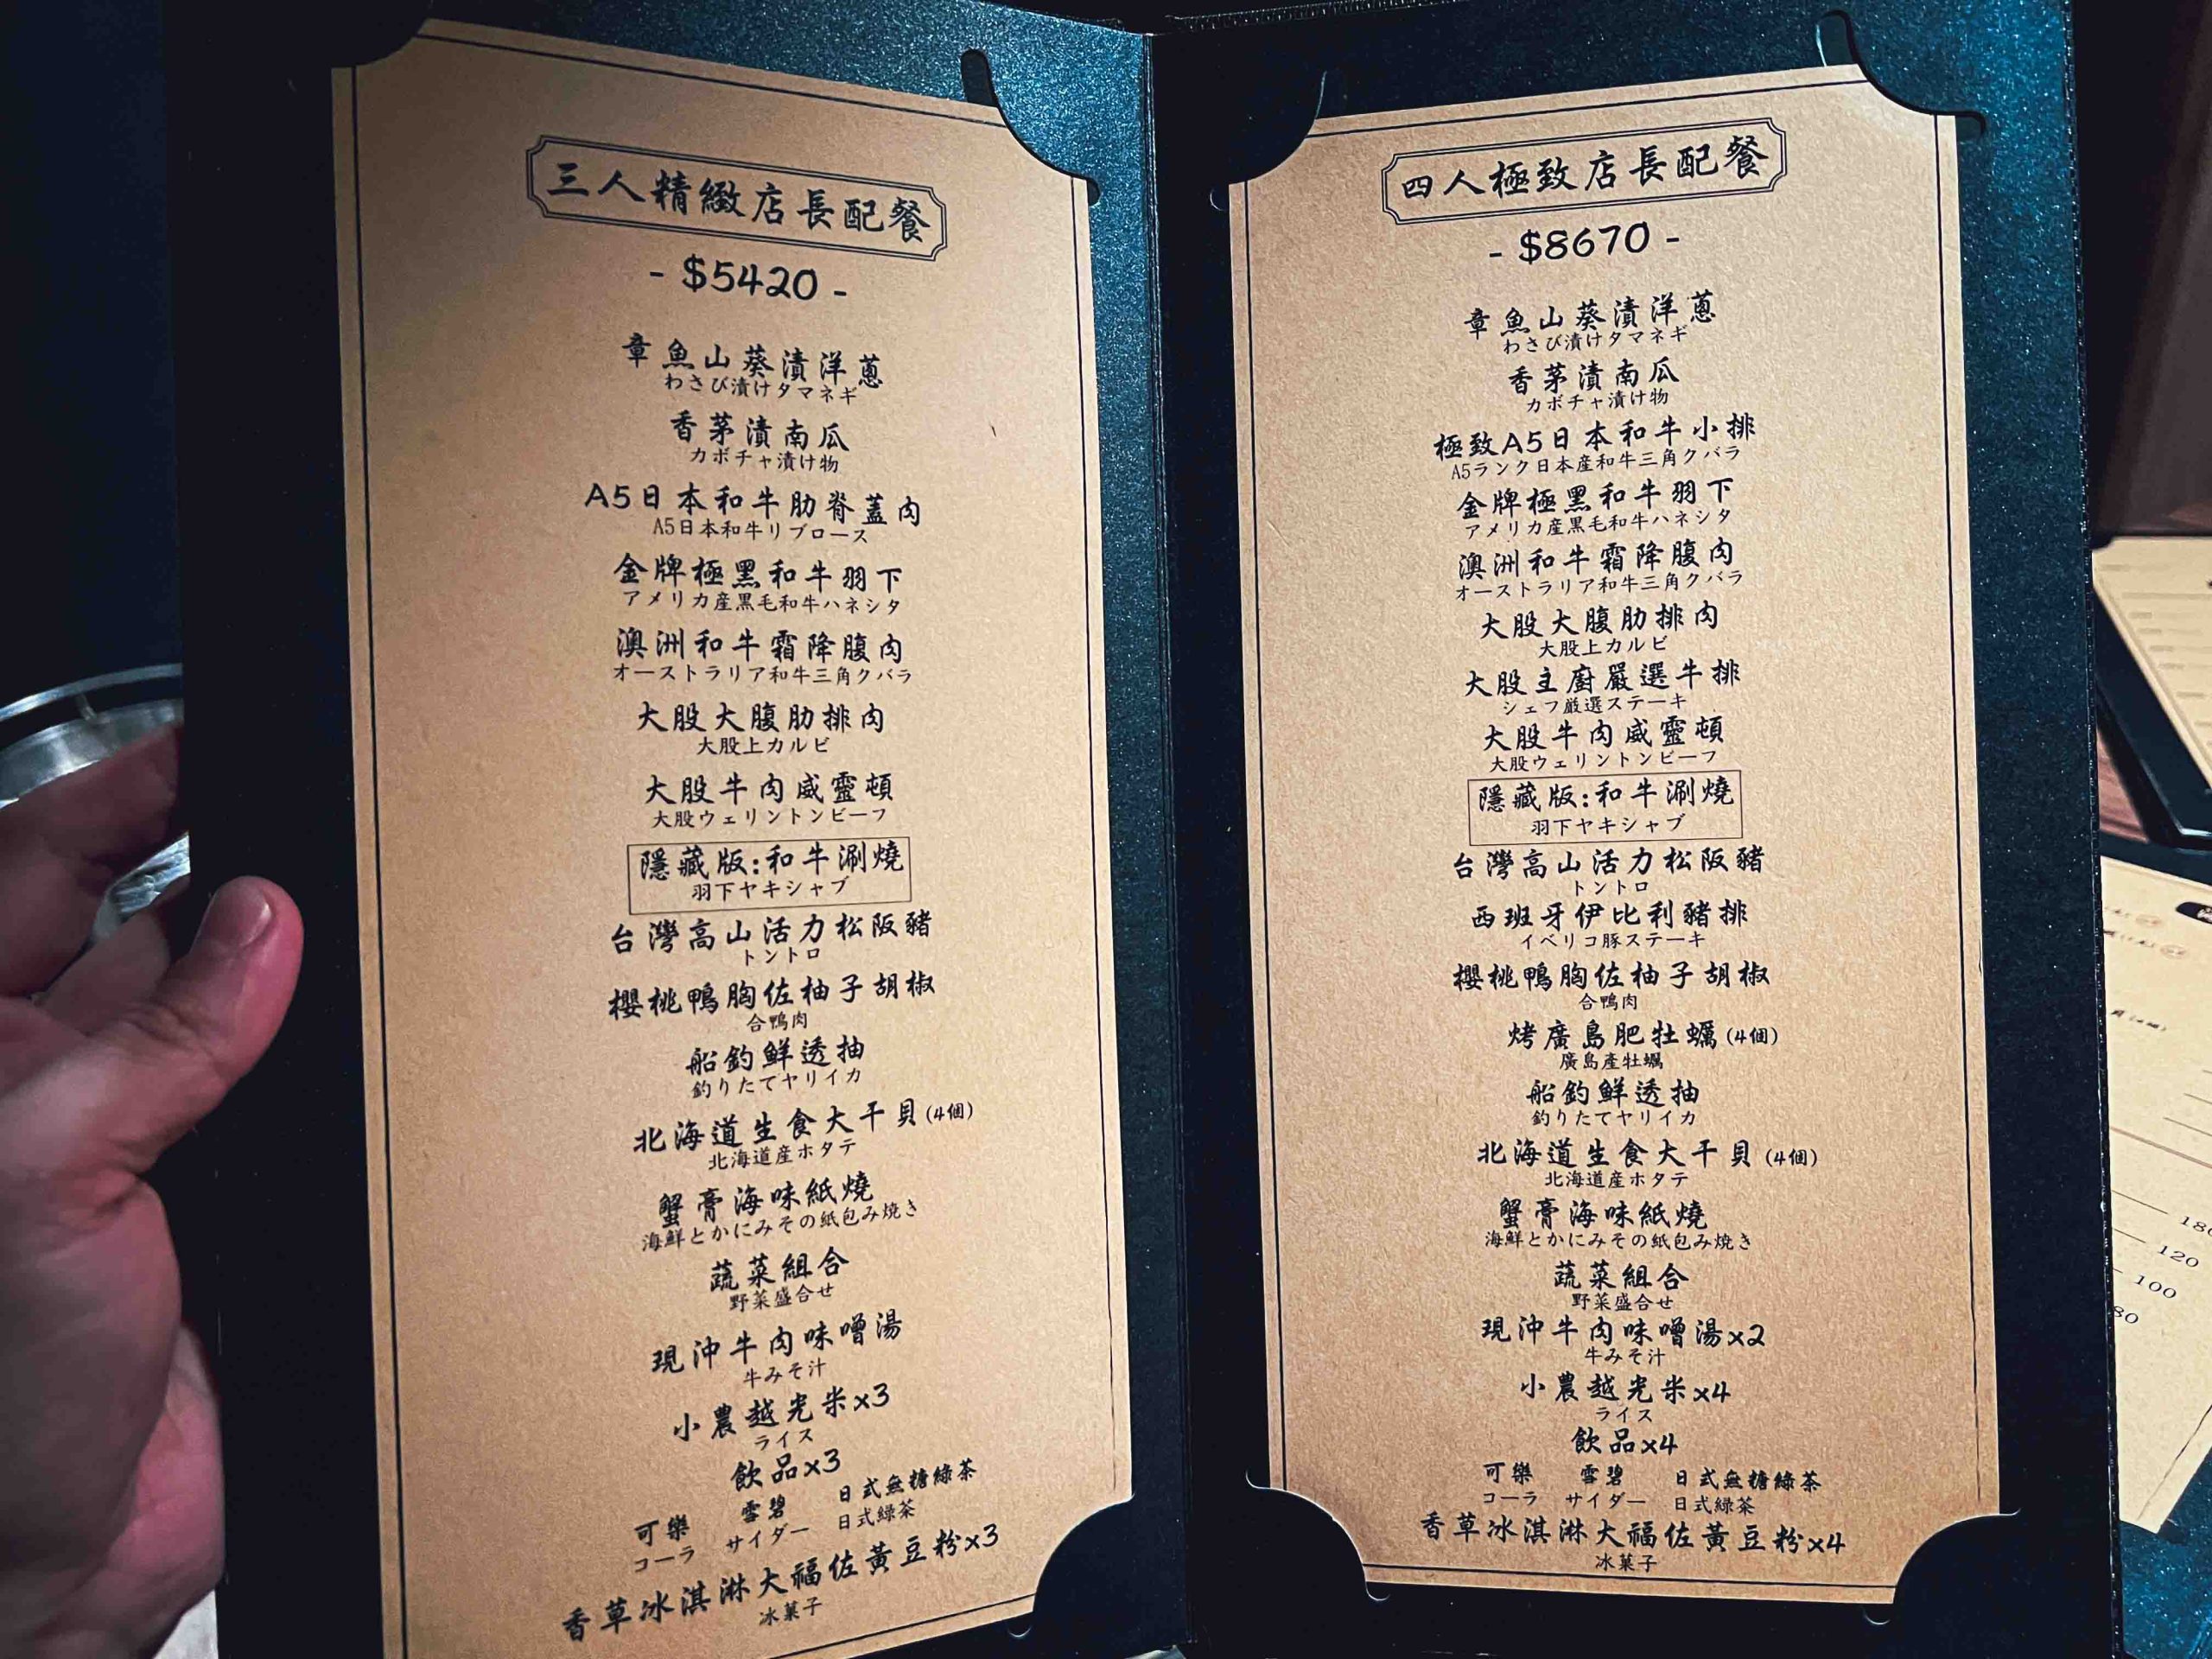 三人精緻店長配餐
- $5420 -
章魚山葵漬洋蔥
わさび漬けタマネギ
香茅漬南瓜
カボチャ漬け物
A5日本和牛肋脊蓋肉
A5日本和牛リブロース
金牌極黑和牛羽下
アメリカ産黒毛和牛ハネシタ
澳洲和牛霜降腹肉
オーストラリア和牛三角クバラ
大股大腹肋排肉
大股上カルビ
大股牛肉威靈頓
大股ウェリントンビーフ
隱藏版:和牛涮燒
羽下ヤキシャブ
台灣高山活力松阪豬
トントロ
櫻桃鴨胸佐柚子胡椒
合鴨肉
船釣鮮透抽
釣りたてヤリイカ
北海道生食大干貝(4個)
北海道産ホタテ
蟹膏海味紙燒
海鮮とかにみその紙包み焼き
蔬菜組合
野菜盛合せ
現沖牛肉味噌湯
牛みそ汁
小農越光米x3
ライス
飲品x3
可樂 雪碧 日式無糖綠茶
コーラ サイダー 日式緑茶
香草冰淇淋大福佐黃豆粉x3
冰菓子
四人極致店長配餐
- $8670 -
章魚山葵漬洋蔥
わさび漬けタマネギ
香茅漬南瓜
カボチャ漬け物
極致A5日本和牛小排
A5ランク日本産和牛三角クバラ
金牌極黑和牛羽下
アメリカ産黒毛和牛ハネシタ
澳洲和牛霜降腹肉
オーストラリア和牛三角クバラ
大股大腹肋排肉
大股上カルビ
大股主廚嚴選牛排
シェフ厳選ステーキ
大股牛肉威靈頓
大股ウェリントンビーフ
隱藏版:和牛涮燒
羽下ヤキシャブ
台灣高山活力松阪豬
トントロ
西班牙伊比利豬排
イベリコ豚ステーキ
櫻桃鴨胸佐柚子胡椒
合鴨肉
烤廣島肥牡蠣(4個)
廣島產牡蠣
船釣鮮透抽
釣りたてヤリイカ
北海道生食大干貝(4個)
北海道産ホタテ
蟹膏海味紙燒
海鮮とかにみその紙包み焼き
蔬菜組合
野菜盛合せ
現沖牛肉味噌湯x2
牛みそ汁
小農越光米x4
ライス
飲品x4
可樂 雪碧 日式無糖綠茶
コーラ サイダー 日式緑茶
香草冰淇淋大福佐黃豆粉x4
冰菓子
120
100